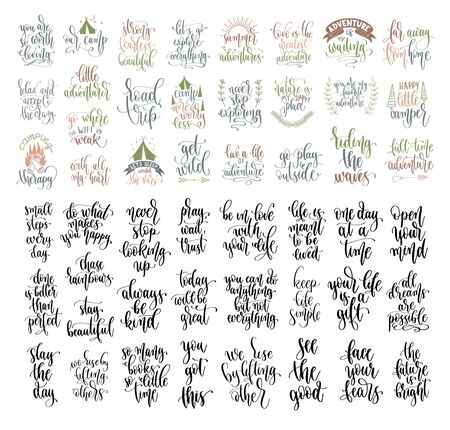 you are
so worth
loving
our camp
strong
fearless
beautiful
let's go
explore
everything
summer
adventures
love is the
greatest
adventure
ADVENTURE
is
waiting
far away
from home
relax and
accept
the crazy
little
adventurer
go where
WIFI is
weak
road
trip
camp
more
worry
less
never
stop
exploring
nature is my
happy
place
adventure
HAPPY
little
camper
CAMPING
therapy
with all
my heart
LET'S SLEEP
under
the stars
get
wild
live a life
adventure
go play
outside
riding
the
waves
full-time
adventure
small
steps
every
day.
do what
makes
you happy.
never
stop
looking
up
pray,
wait
trust
be in love
with
your life
life is
meant
to be
lived
one day
at a
time
open
your
mind
done
is better
than
perfect
chase
rainbows
stay
beautiful
always
be
kind
today
will be
great
you can do
anything
but
not
everything.
keep
life
simple
your life
is a
gift
all
dreams
are
possible
slay
the
day
we rise by
lifting
others
so many
books
so little
time
you
got
this
we rise
by lifting
other
see
the
good
face
your
fears
the
future
is
bright